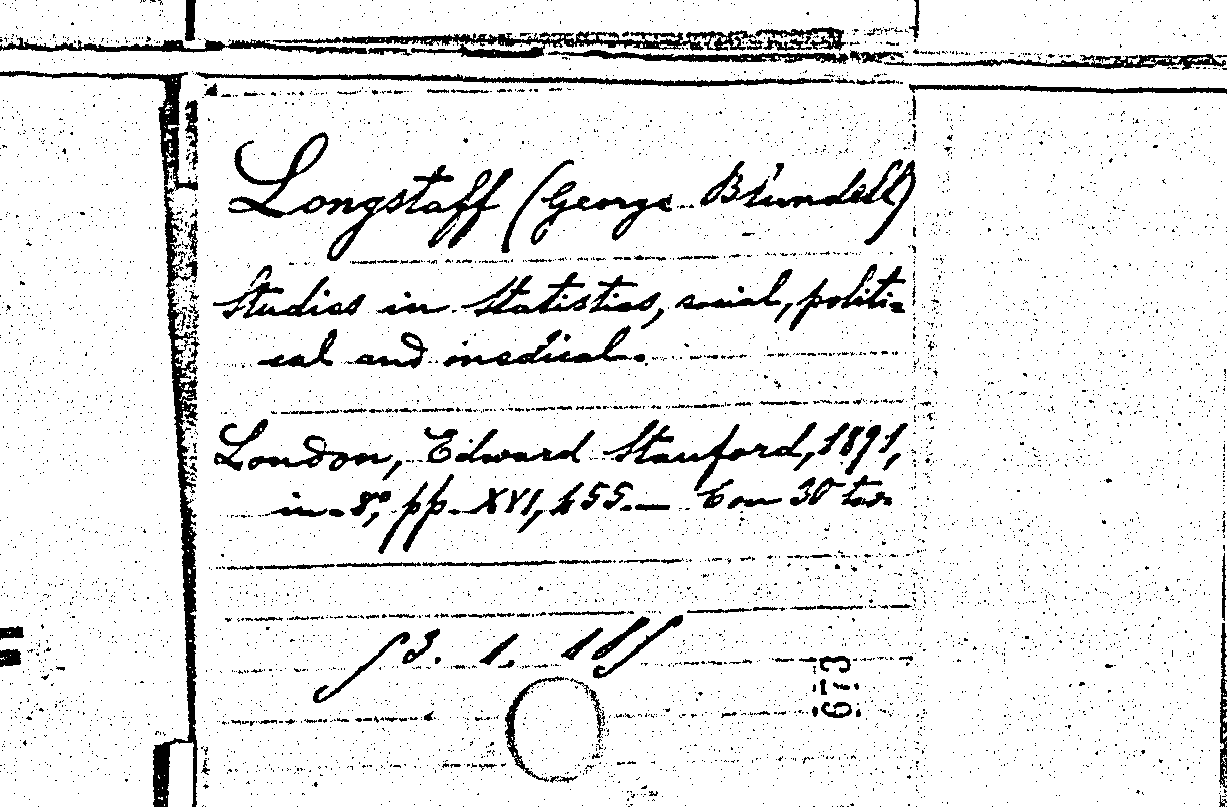 Longstaff (George Blundell)
Studies in Statistics, social, politi-
cal and medical.
London, Edward Stanford, 1891,
in-8º, pp. XVI, 455.— Con 30 tav.
53. 1. 185
673